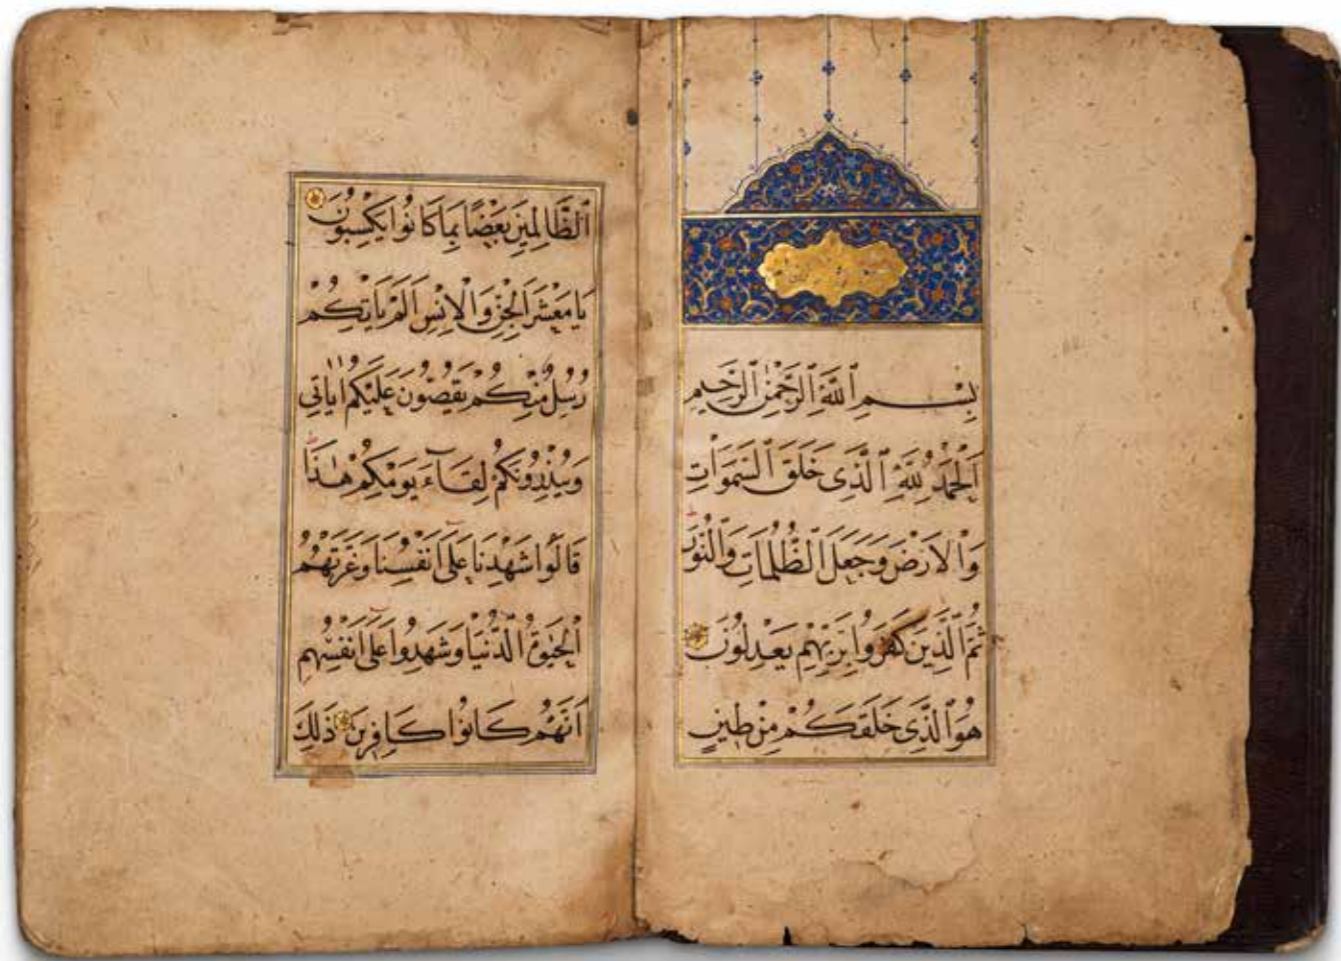 بِسْمِ ٱللَّهِ ٱلرَّحْمٰنِ ٱلرَّحِيمِ
اَلْحَمْدُ لِلَّهِ ٱلَّذِى خَلَقَ ٱلسَّمَوَاتِ
وَٱلْاَرْضَ وَجَعَلَ ٱلظُّلُمَاتِ وَٱلنُّورَ
ثُمَّ ٱلَّذِينَ كَفَرُوا بِرَبِّهِمْ يَعْدِلُونَ
هُوَ ٱلَّذِى خَلَقَكُمْ مِنْ طِينٍ
ٱلظَّالِمِينَ بَعْضًا بِمَا كَانُوا يَكْسِبُونَ
يَا مَعْشَرَ ٱلْجِنِّ وَٱلْاِنْسِ اَلَمْ يَاْتِكُمْ
رُسُلٌ مِنْكُمْ يَقُصُّونَ عَلَيْكُمْ اٰيَاتِى
وَيُنْذِرُونَكُمْ لِقَآءَ يَوْمِكُمْ هٰذَا
قَالُوا شَهِدْنَا عَلَى اَنْفُسِنَا وَغَرَّتْهُمُ
ٱلْحَيٰوةُ ٱلدُّنْيَا وَشَهِدُوا عَلَى اَنْفُسِهِمْ
اَنَّهُمْ كَانُوا كَافِرِينَ ذَلِكَ